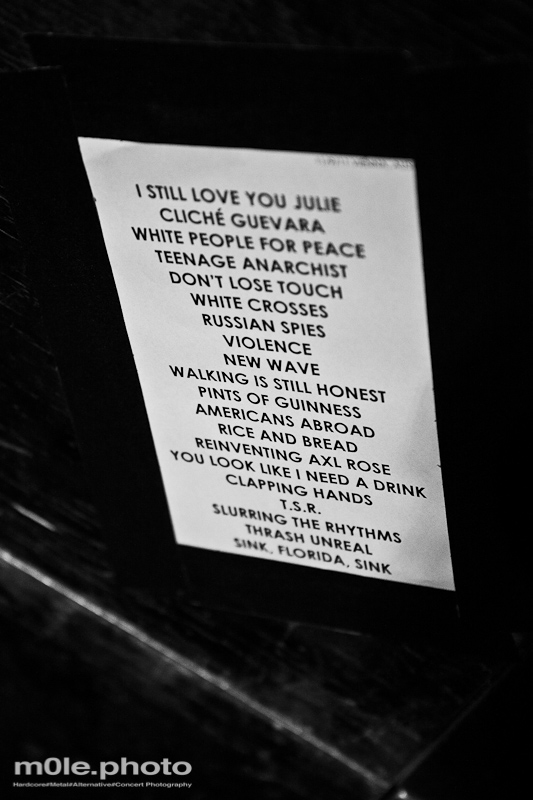 I STILL LOVE YOU JULIE
CLICHÉ GUEVARA
WHITE PEOPLE FOR PEACE
TEENAGE ANARCHIST
DON'T LOSE TOUCH
WHITE CROSSES
RUSSIAN SPIES
VIOLENCE
NEW WAVE
WALKING IS STILL HONEST
PINTS OF GUINNESS
AMERICANS ABROAD
RICE AND BREAD
REINVENTING AXL ROSE
YOU LOOK LIKE I NEED A DRINK
CLAPPING HANDS
T.S.R.
SLURRING THE RHYTHMS
THRASH UNREAL
SINK, FLORIDA, SINK
m0le.photo
Hardcore#Metal#Alternative#Concert Photography